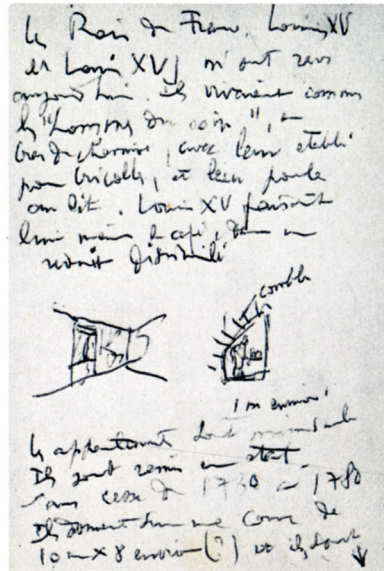 Les Rois de France. Louis XV
et Louis XVI m'ont reçu
aujourd'hui. Ils vivaient comme
les "hommes du coin", en
bras de chemise, avec leur établi
pour bricoler, et leur poule
au lit. Louis XV faisant
lui même le café, dans un
réduit dissimulé
comble
1 m environ
Les appartements sont
Ils sont remis en état
sans cesse de 1730 à 1780
Ils donnent sur une cour de
10 m X 8 environ (?) et ils sont